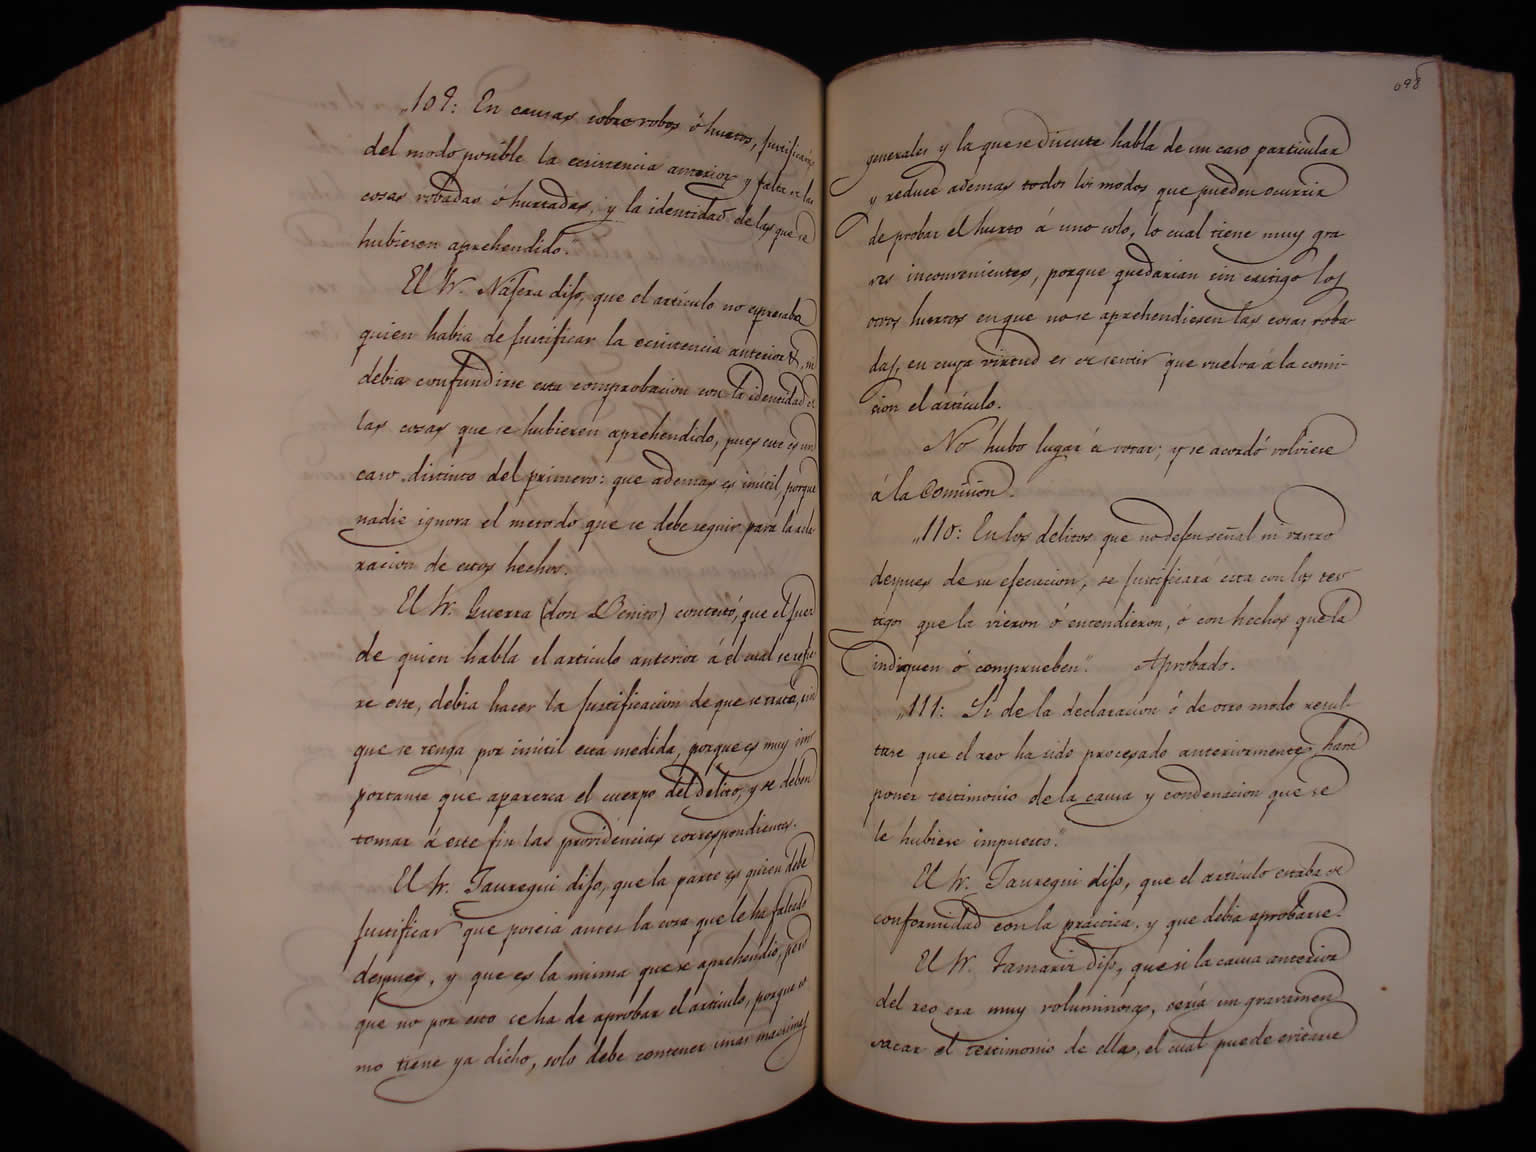 „109: En causas sobre robos ó hurtos, justificará
del modo posible la ecsistencia anterior y falta de las
cosas robadas ó hurtadas, y la identidad de las que se
hubiesen aprehendido.”
El Sr. Nájera dijo, que el artículo no espresaba
quien habia de justificar la ecsistencia anterior &, ni
debia confundirse esta comprobacion con la identidad de
las cosas que se hubieren aprehendido, pues este es un
caso distinto del primero: que ademas es inútil, porque
nadie ignora el metodo que se debe seguir para la acla
racion de estos hechos.
El Sr. Guerra (don Benito) contestó, que el juez
de quien habla el artículo anterior á el cual se refie
re este, debia hacer la justificacion de que se trata, sin
que se tenga por inútil esta medida, porque es muy im
portante que aparezca el cuerpo del delito, y se deben
tomar á este fin las providencias correspondientes.
El Sr. Jauregui dijo, que la parte es quien debe
justificar que poseia antes la cosa que le ha faltado
despues, y que es la misma que se aprehendió, pero
que no por esto se ha de aprobar el artículo, porque co
mo tiene ya dicho, solo debe contener unas macsimas
098
generales y la que se discute habla de un caso particular
y reduce ademas todos los modos que pueden ocurrir
de probar el hurto á uno solo, lo cual tiene muy gra
ves inconvenientes, porque quedarian sin castigo los
otros hurtos en que no se aprehendiesen las cosas roba-
das, en cuya virtud es de sentir que vuelva á la comi-
sion el artículo.
No hubo lugar á votar; y se acordó volviese
á la Comision.
„110: En los delitos que no dejen señal ni rastro
despues de su ejecucion, se justificará esta con los tes
tigos que la vieron ó entendieron, ó con hechos que la
indiquen ó comprueben”. Aprobado.
„111: Si de la declaracion ó de otro modo resul-
tare que el reo ha sido procesado anteriormente, hará
poner testimonio de la causa y condenacion que se
le hubiere impuesto.”
El Sr. Jauregui dijo, que el artículo estaba de
conformidad con la práctica, y que debia aprobarse.
El Sr. Tamariz dijo, que si la causa anterior
del reo era muy voluminosa, sería un gravamen
sacar el testimonio de ella, el cual puede evitarse